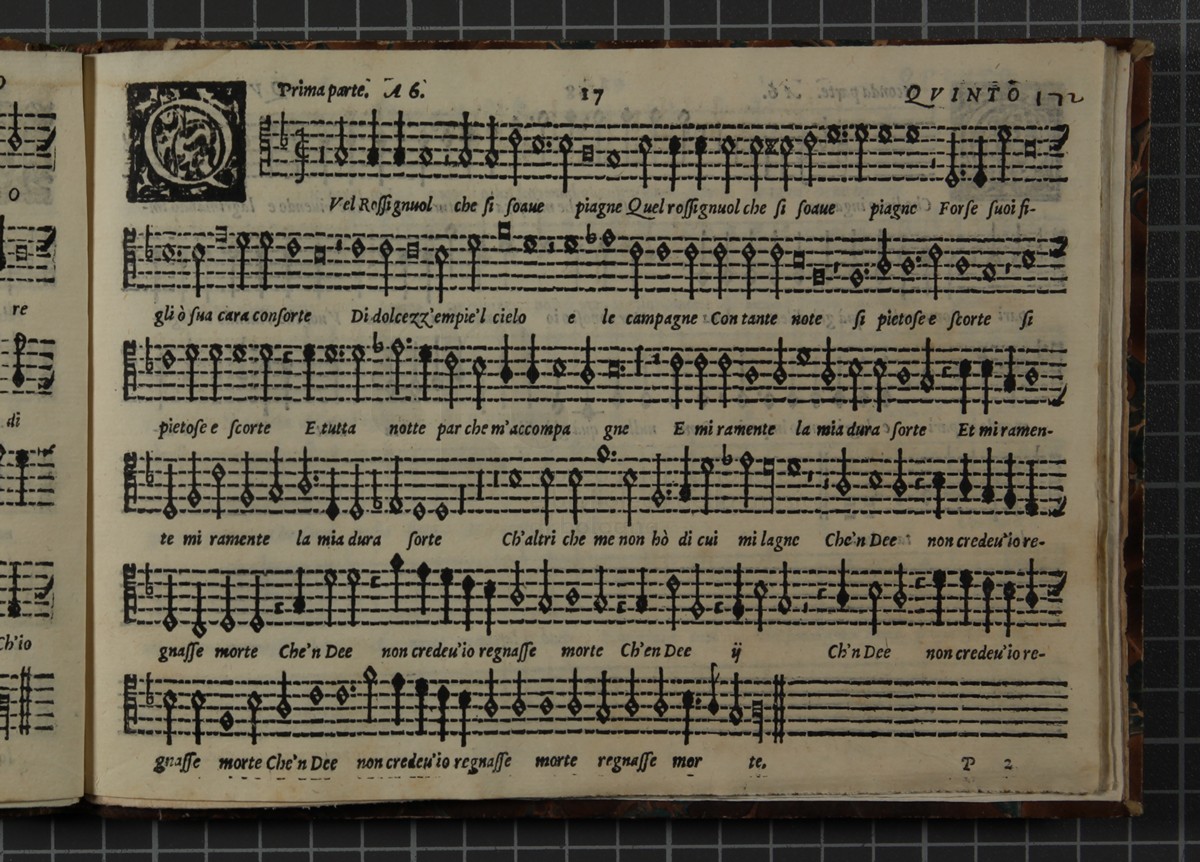 Prima parte. A 6. 17 QVINTO 172
QVel Rossignuol che si soaue piagne Quel rossignuol che si soaue piagne Forse suoi fi-
gli ò sua cara consorte Di dolcezz'empie'l cielo e le campagne Con tante note si pietose e scorte si
pietose e scorte E tutta notte par che m'accompa gne E mi ramente la mia dura sorte Et mi ramen-
te mi ramente la mia dura sorte Ch'altri che me non hò di cui mi lagne Che'n Dee non credeu'io re-
gnasse morte Che'n Dee non credeu'io regnasse morte Ch'en Dee ij Ch'n Dee non credeu'io re-
gnasse morte Che'n Dee non credeu'io regnasse morte regnasse mor te.
P 2
O
re
di
Ch'io